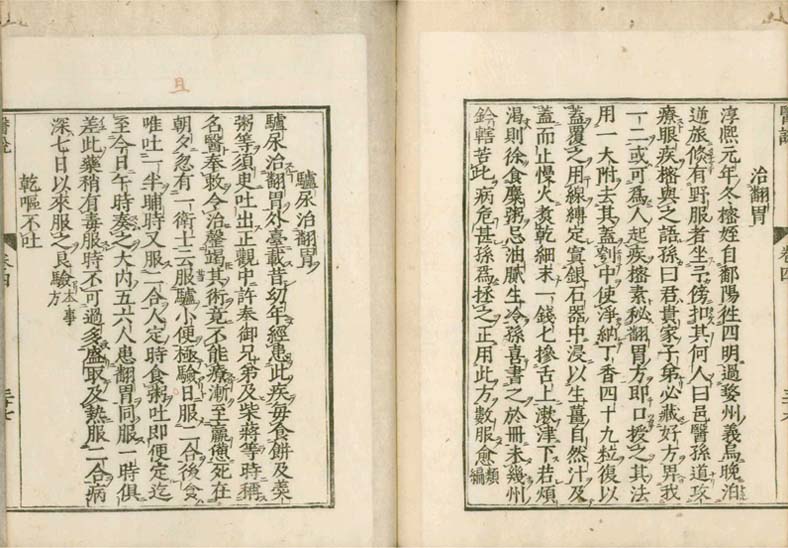 治翻胃
淳熙元年冬榰姪自鄱陽徃四明過婺州義烏晚泊
道旅倐有野服者坐于傍扣其何人曰邑醫孫道攻
療眼疾榰與之語孫曰君貴家子弟必藏好方畀我
一二或可為人起疾榰素秘翻胃方即口授之其法
用一大附去其蓋刳中使淨納丁香四十九粒復以
蓋覆之用線縛定寘銀石器中浸以生薑自然汁及
蓋而止慢火煑乾細末一錢七摻舌上漱津下若煩
渴則徐食糜粥忌油膩生冷孫喜書之於冊未幾州
鈐轄苦此病危甚孫為拯之正用此方數服愈類編
驢尿治翻胃
驢尿治翻胃外臺載昔幼年經患此疾每食餅及羹
粥等須臾吐出正觀中許奉御兄弟及柴蔣等時稱
名醫奉敕令治罄竭其術竟不能療漸至羸憊死在
朝夕忽有一衛士云服驢小便極驗日服二合後食
唯吐一半晡時又服二合人定時食粥吐即便定迄
至今日午時奏之大内五六人患翻胃同服一時俱
差此藥稍有毒服時不可過多盛取及熱服二合病
深七日以來服之良驗本事方
乾嘔不吐
醫說
卷四